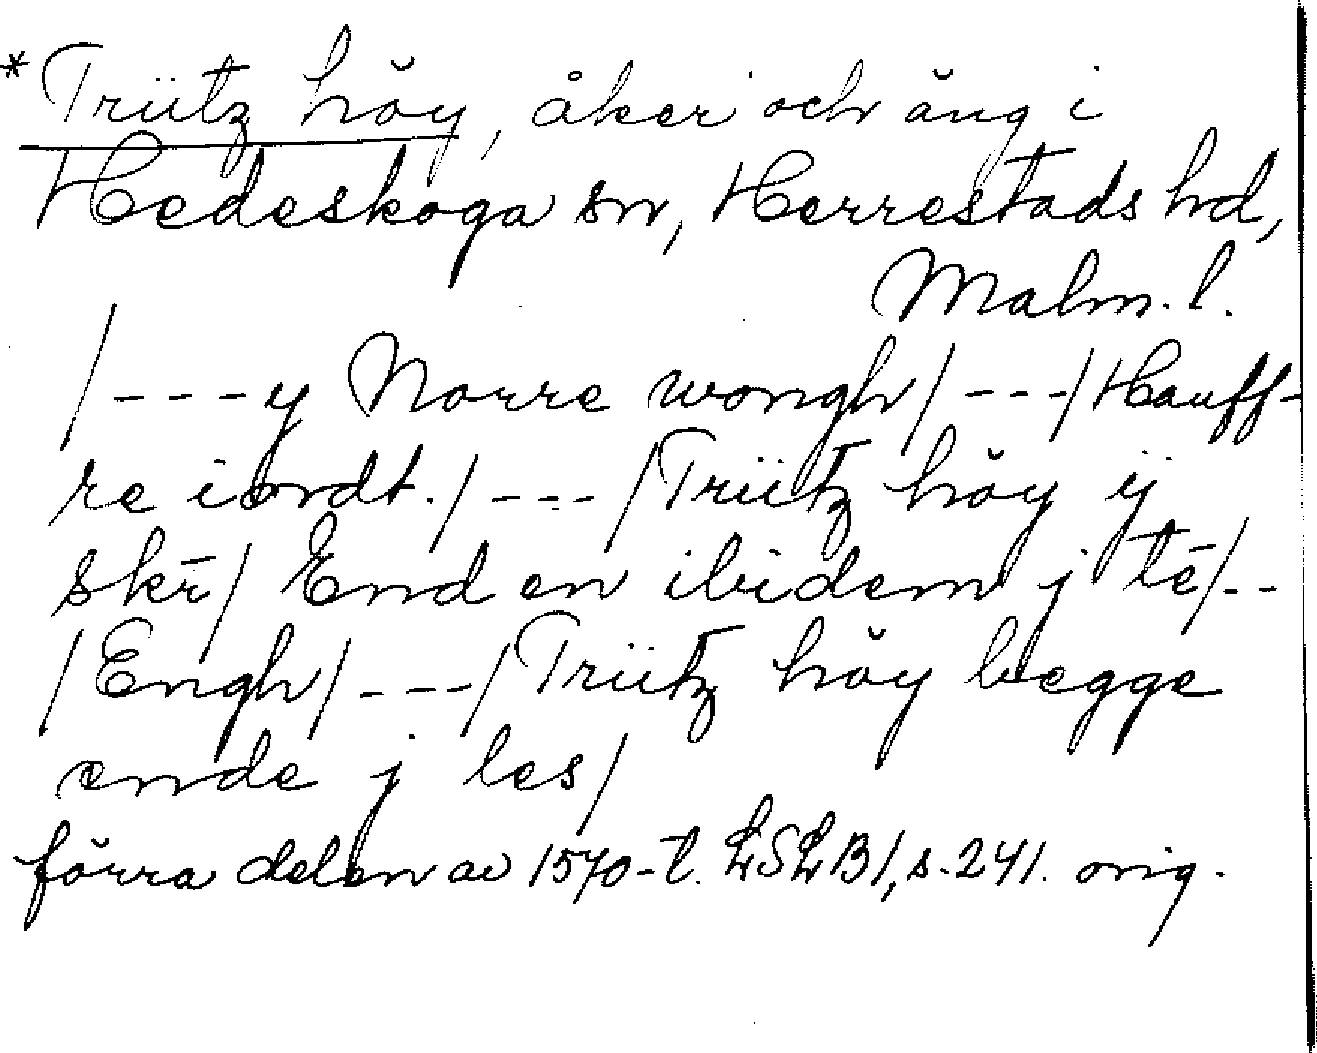 *Trütz höy, åker och äng i
Hedeskoga sn, Herrestads hd,
Malm. l.
/---y Norre wongh/---/Hauff-
re iordt./---/Trütz höy ÿ
skr̄/ End en ibidem j tē/--
/Engh/---/Trütz höy begge
ende j les/
förra delen av 1570-t. LSLB1, s. 241. orig.